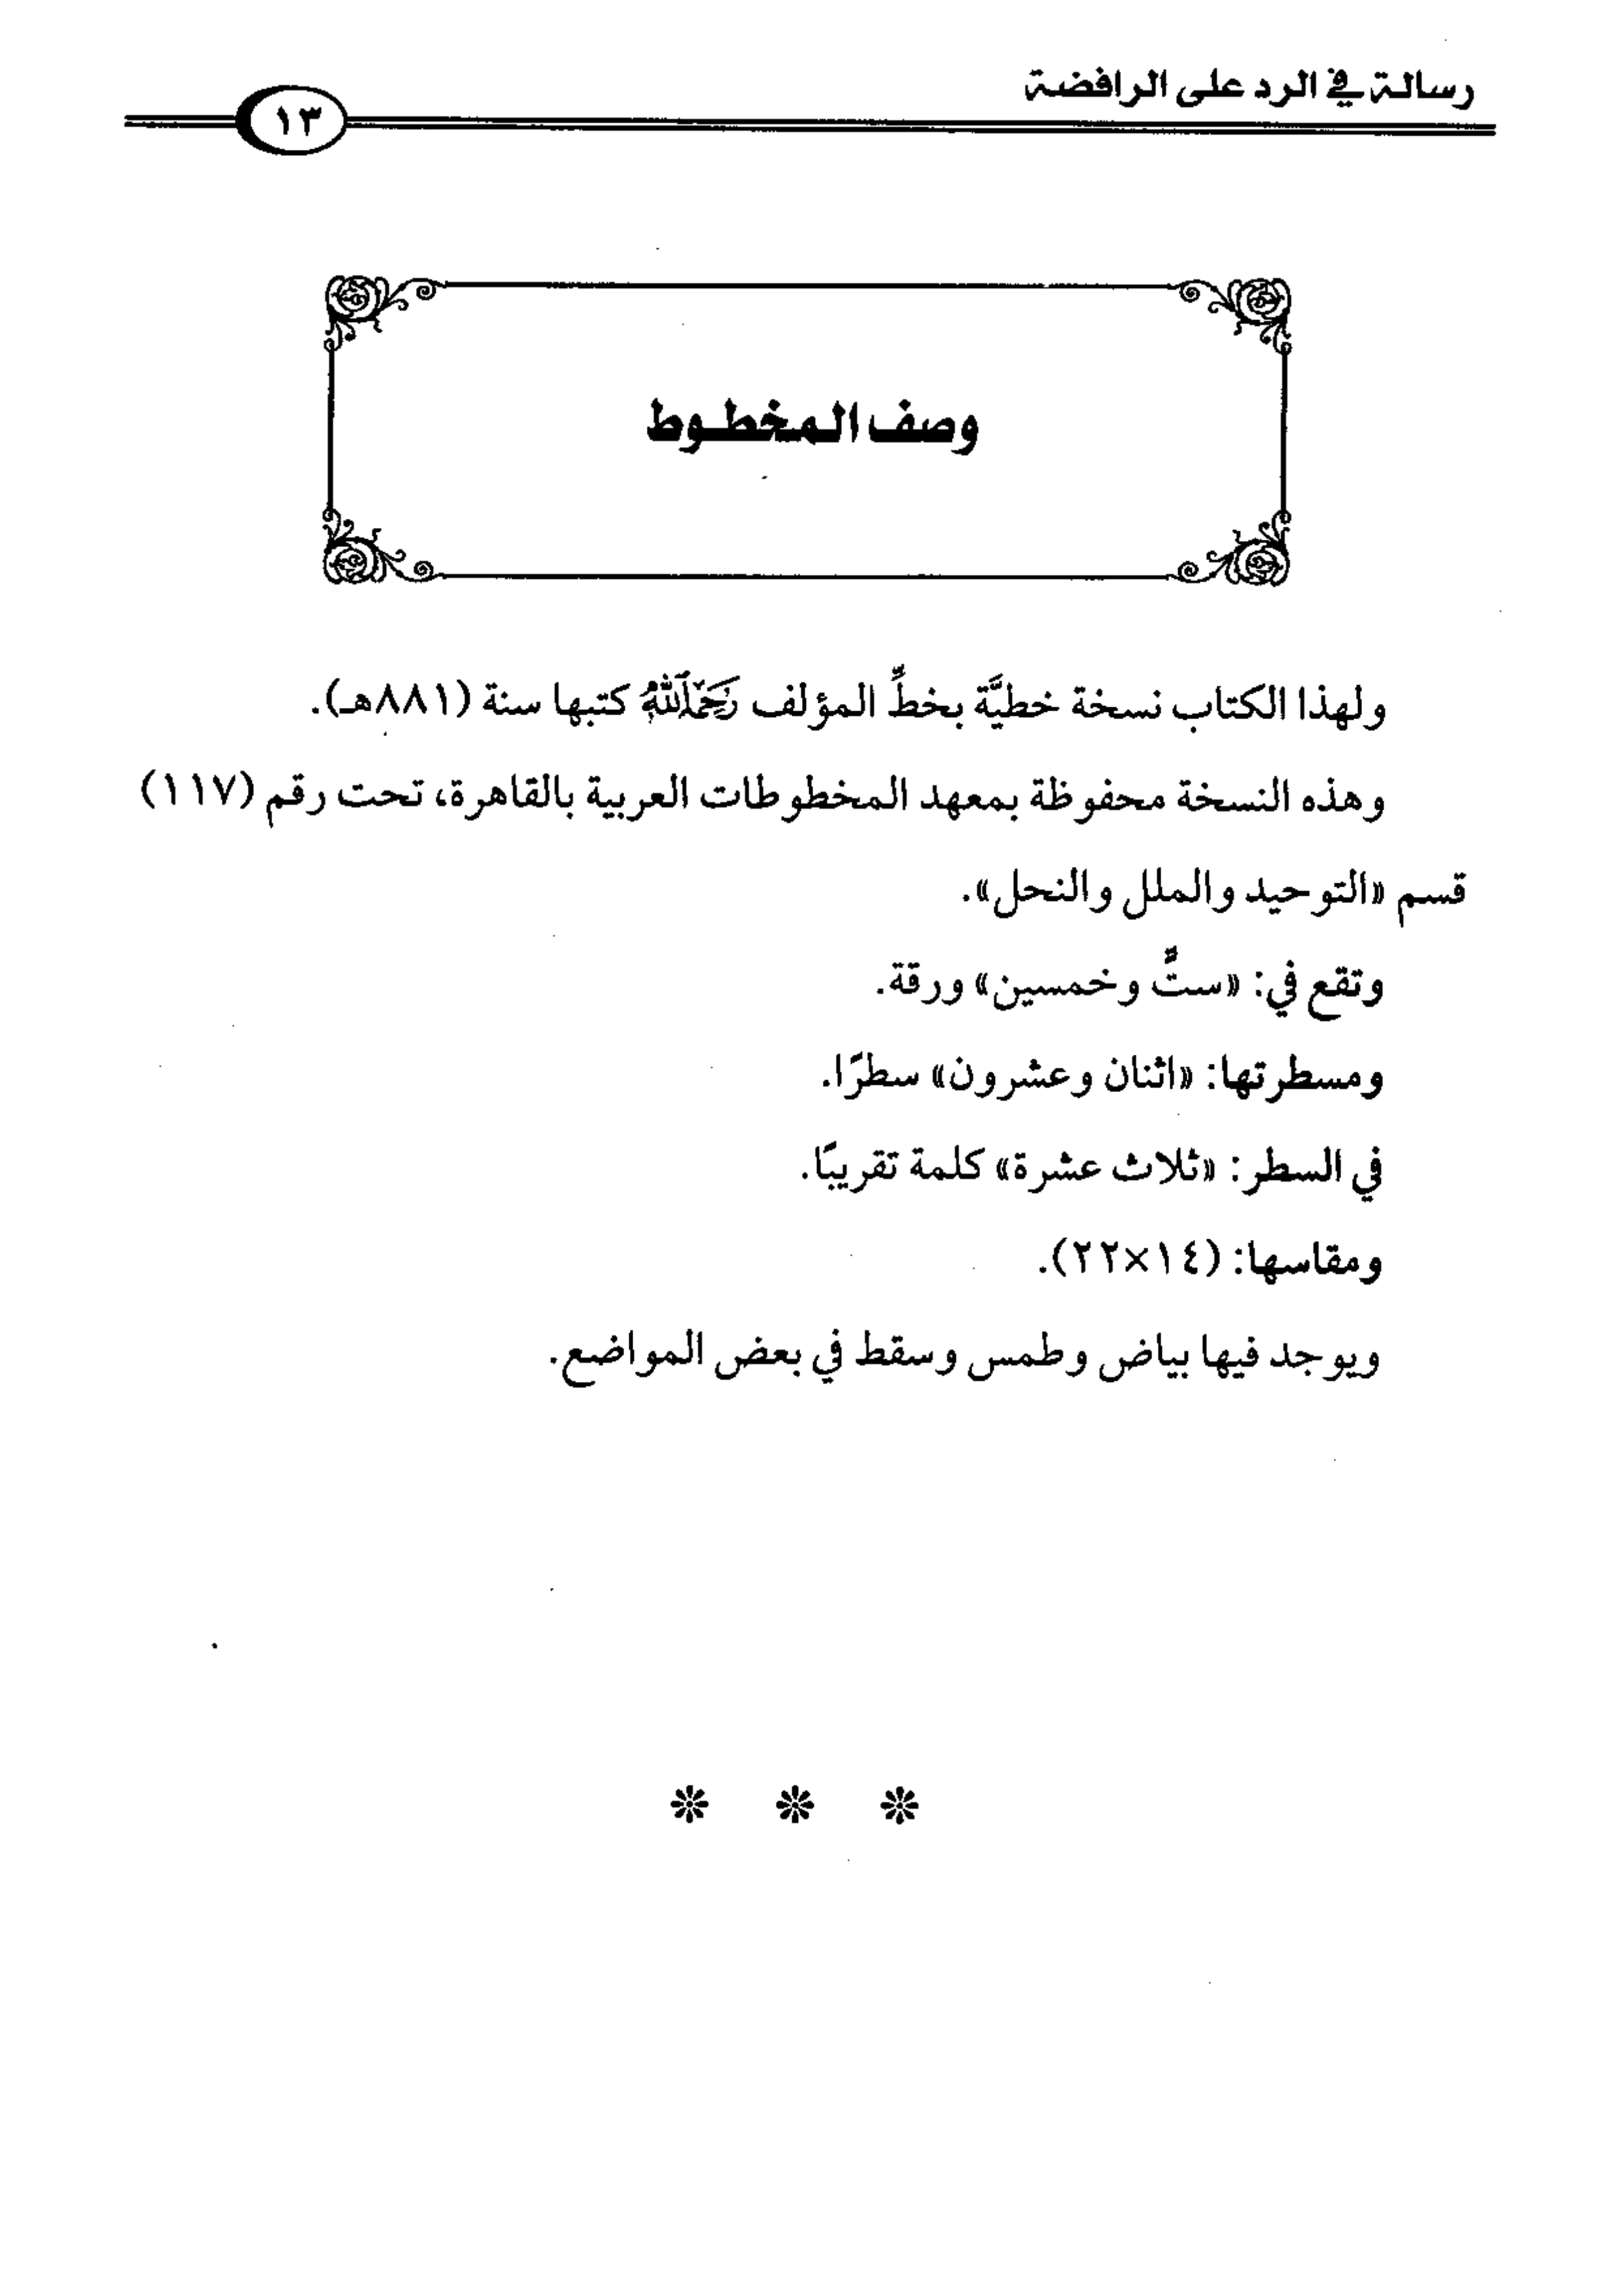 رسالة في الرد على الرافضة
١٣
وصف المخطوط
ولهذا الكتاب نسخة خطيَّة بخطِّ المؤلف رَحِمَهُ ٱللَّهُ كتبها سنة (٨٨١هـ).
وهذه النسخة محفوظة بمعهد المخطوطات العربية بالقاهرة، تحت رقم (١١٧)
قسم «التوحيد والملل والنحل».
وتقع في: «ستٌّ وخمسين» ورقة.
ومسطرتها: «اثنان وعشرون» سطرًا.
في السطر: «ثلاث عشرة» كلمة تقريبًا.
ومقاسها: (١٤×٢٢).
ويوجد فيها بياض وطمس وسقط في بعض المواضع.